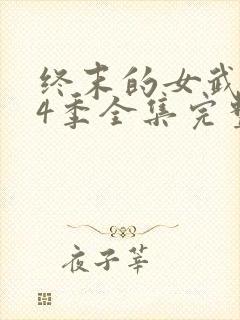 终末的女武
4季全集完整
夜子莘